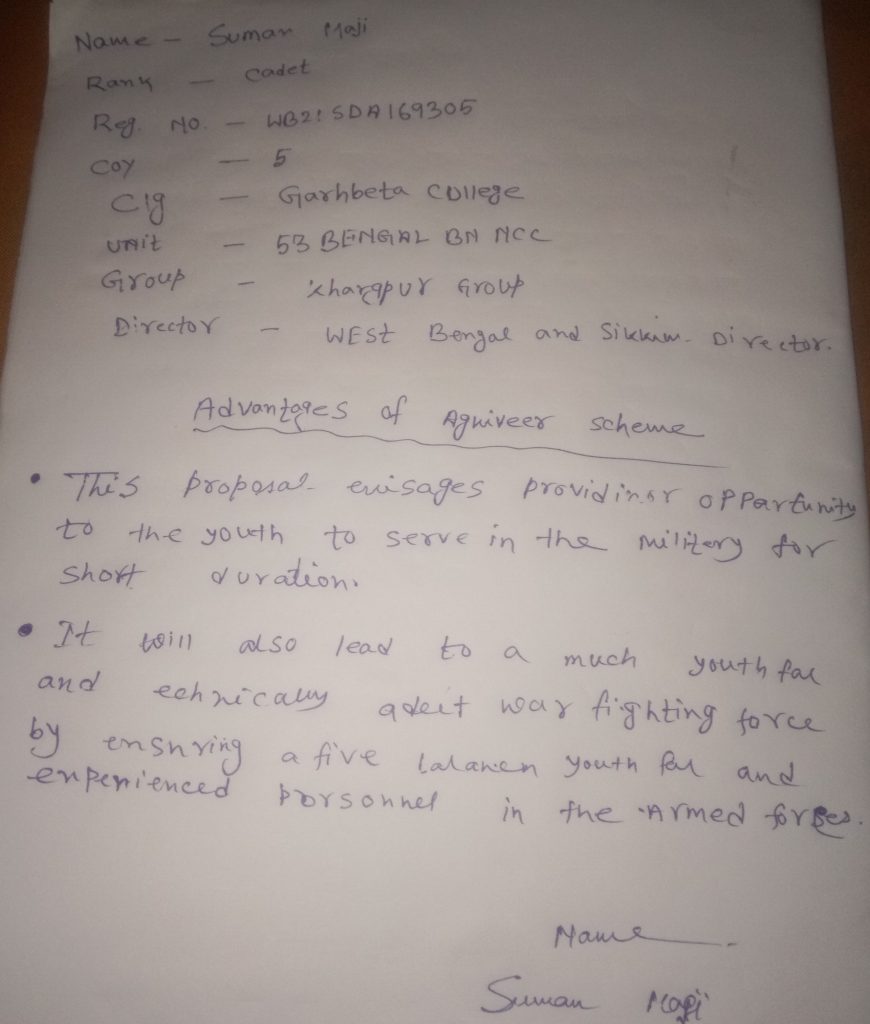 Name - Suman Maji
Rank - Cadet
Reg. No. - WB21SDA169305
Coy - 5
Clg - Garhbeta College
Unit - 53 BENGAL BN NCC
Group - Kharagpur Group
Director - WEst Bengal and Sikkim Director.
Advantages of Agniveer scheme
• This proposal envisages providing opportunity
to the youth to serve in the military for
short duration.
• It will also lead to a much youth ful
and echnically adeit war fighting force
by ensuring a five youth ful and
experienced personnel in the Armed forces.
Name
Suman Maji